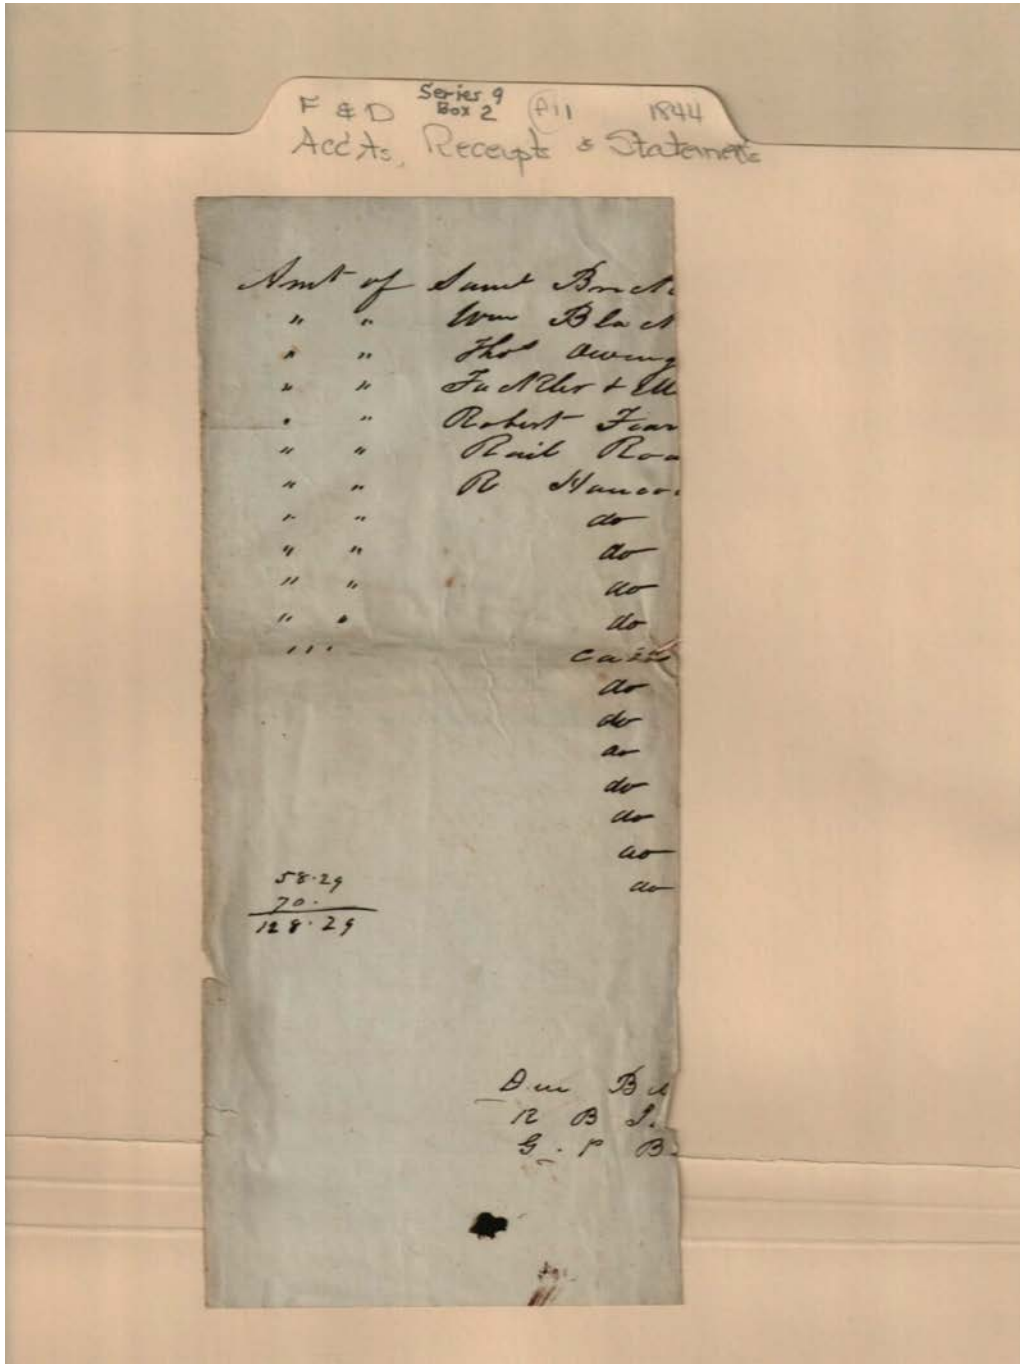 F & D Series 9 Box 2 1844
Accts, Receipts & Statements
Amt of Saml
" " Wm Black
" " Thos Owing
" "
" " Robert Fear
" " Rail Roa
" " R Hanco
" " do
" " do
" " do
" " do
" " Cash
do
do
do
do
do
do
do
58.29
70.
128.29
Due
R B
G. P B.